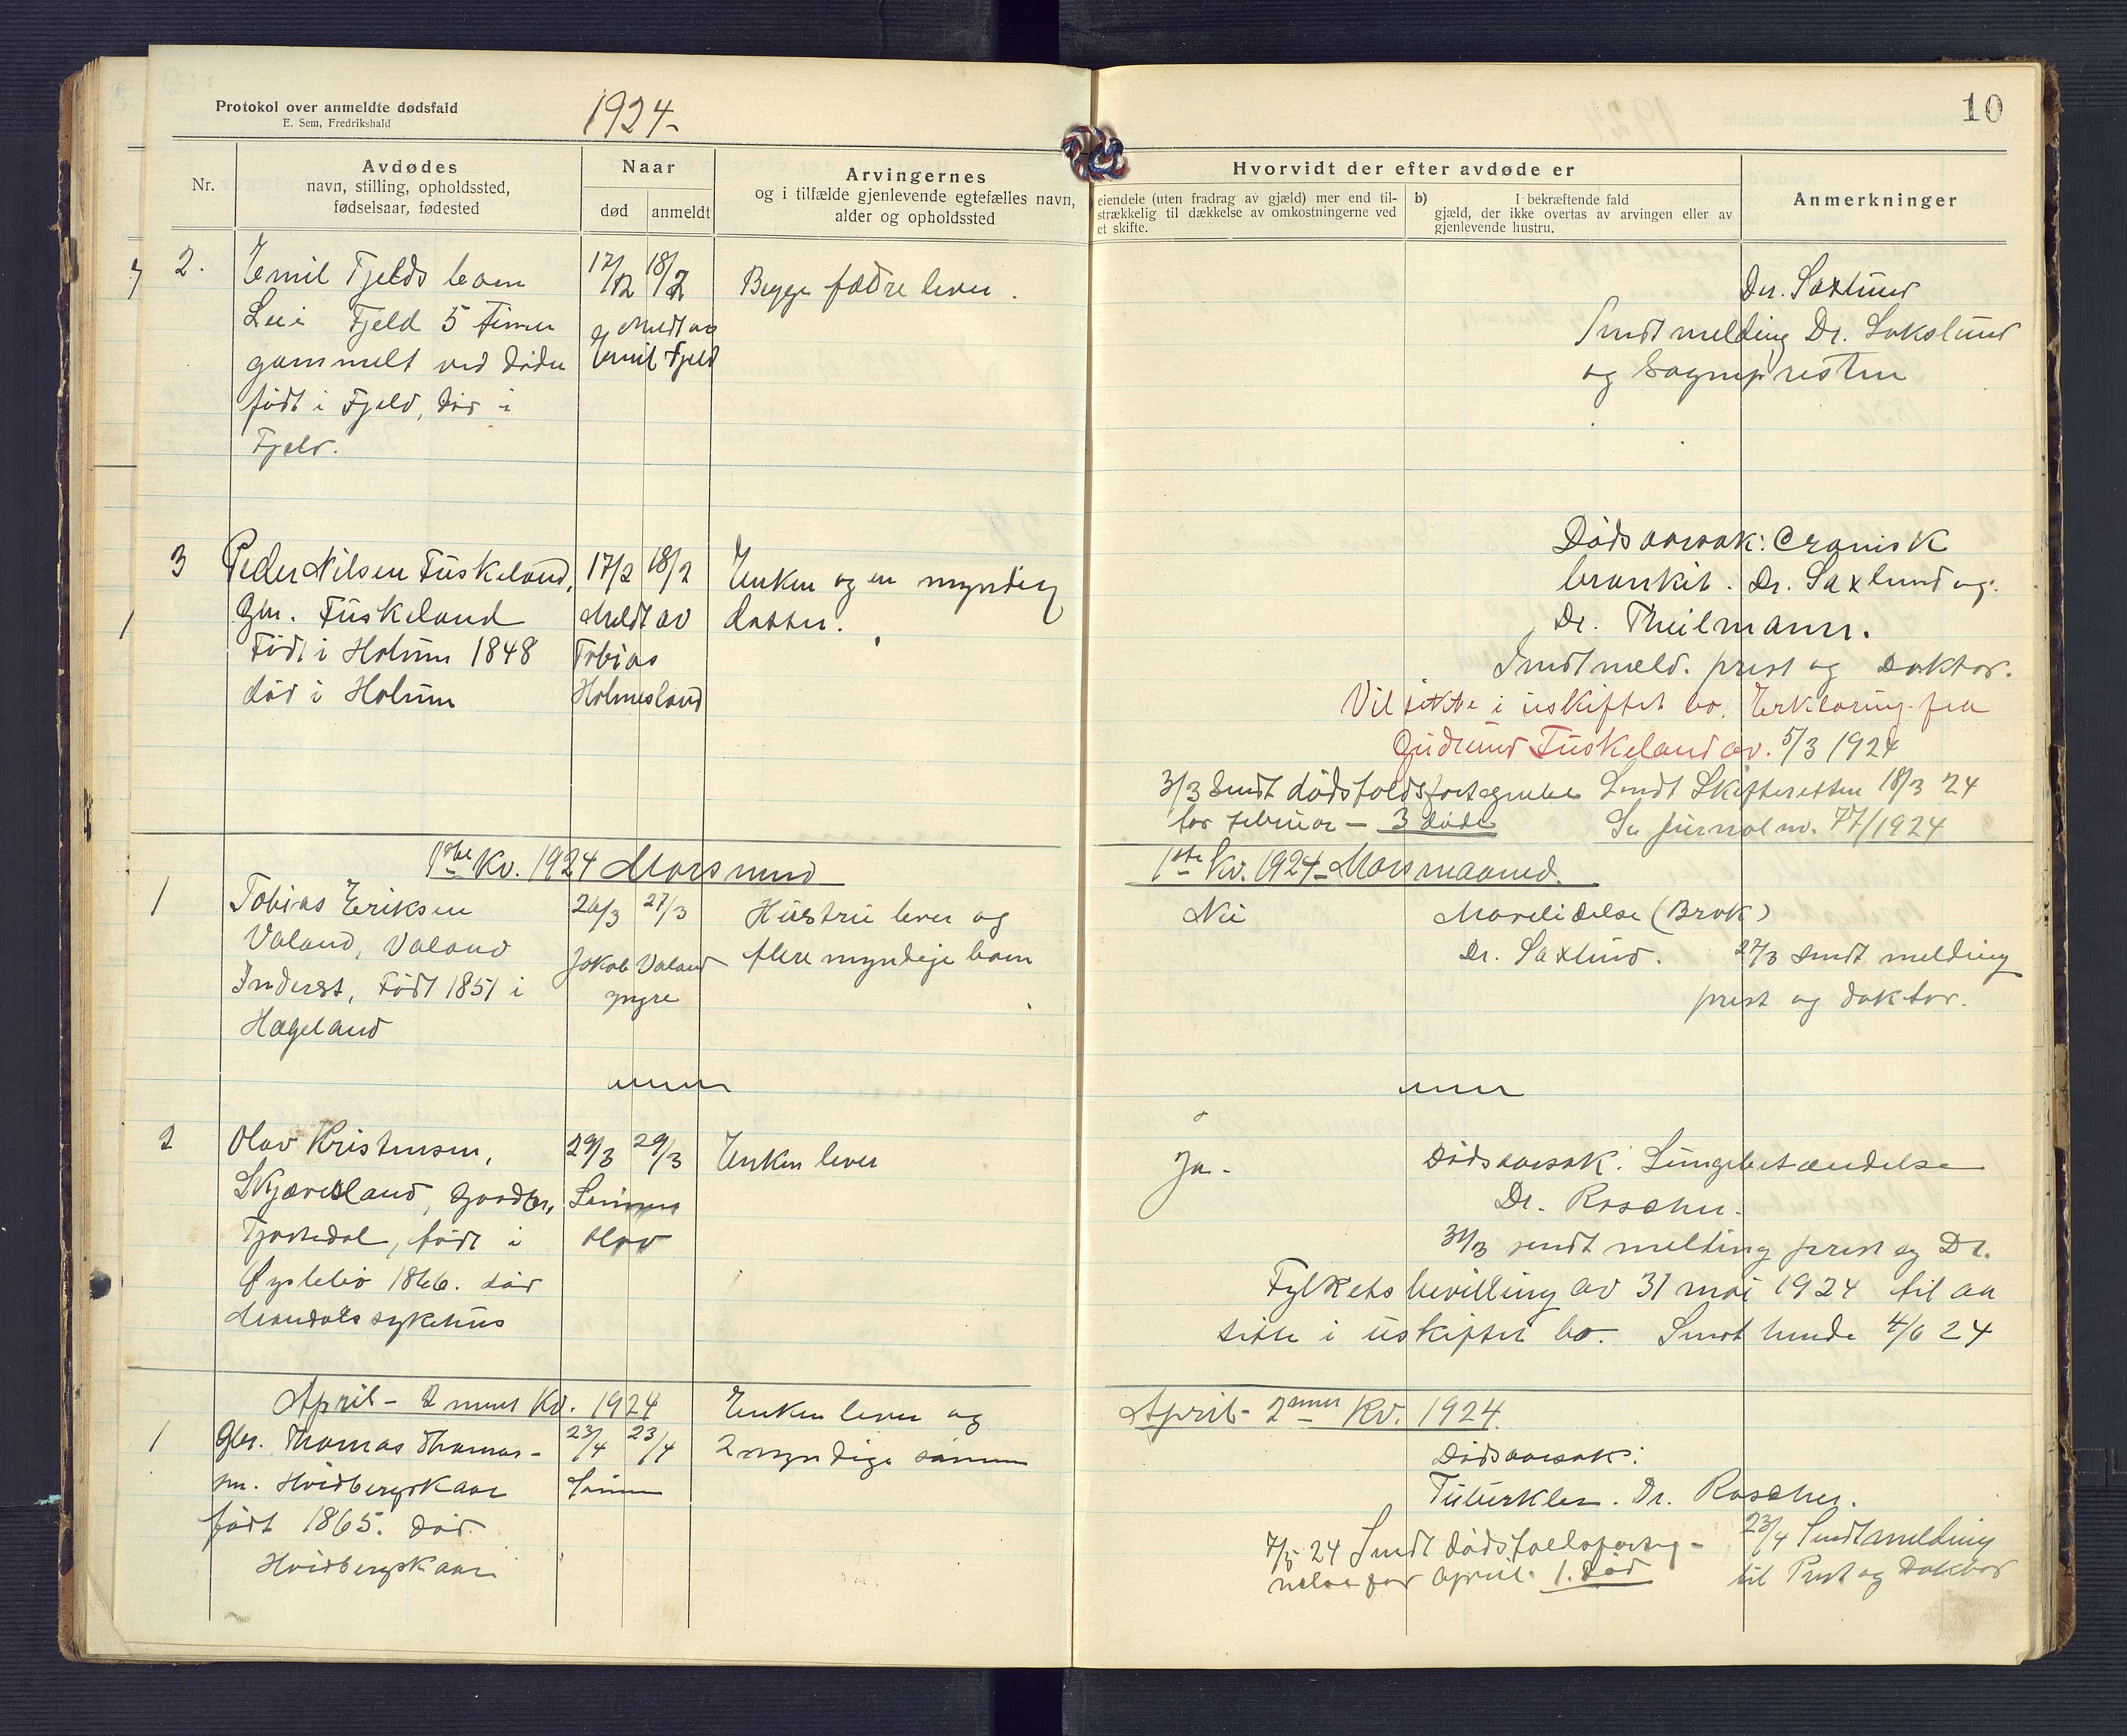 Protokol over anmeldte dødsfald
E. Sem, Fredrikshald
1924-
10
Nr.
Avdødes
navn, stilling, opholdssted,
fødselsaar, fødested
Naar
død
anmeldt
Arvingernes
og i tilfælde gjenlevende egtefælles navn,
alder og opholdssted
Hvorvidt der efter avdøde er
eiendele (uten fradrag av gjæld) mer end til-
strækkelig til dækkelse av omkostningerne ved
et skifte.
b) I bekræftende fald
gjæld, der ikke overtas av arvingen eller av
gjenlevende hustru.
Anmerkninger
2.
Emil Fjelds barn
Fjeld 5 timer
gammelt ved døden
født i Fjeld, død i
Fjeld.
17/2 18/2
Meldt av
Emil Fjeld
Begge fædre lever.
Dr. Saxlund
Sendt melding Dr. Sakslund
og Sognepresten
3
Peder Nilsen Fuskeland,
Gbr. Fuskeland
Født i Holum 1848
død i Holum
17/2 18/2
Meldt av
Tobias
Holmesland
Enken og en myndig
datter.
Dødsaarsak: Cronisk
bronkit. Dr. Saxlund og
Dr. Theilmann.
Sendt meld. prest og Doktor.
Vil sitte i uskiftet bo. Erklæring fra
Gudrund Fuskeland av. 5/3 1924
3/3 Sendt dødsfaldsfortegnelse
for februar - 3 døde
Sendt Skifteretten 18/3 24
Se Journal no. 77/1924
1ste Kv. 1924 Mars mnd
1ste Kv. 1924 - Mars maaned.
1
Tobias Eriksen
Valand, Valand
Inderst, Født 1851 i
Hægeland
26/3 27/3
Jakob Valand
yngre
Hustru lever og
flere myndige barn
Nei
Mavelidelse (Brok)
Dr. Saxlund.
27/3 sendt melding
prest og doktor.
2
Olav Kristensen,
Skjævesland, Gaardbr,
født i
Øyslebø 1866. død
Mandals sykehus
29/3 29/3
Sønnen
Olav
Enken lever
Ja-
Dødsaarsak: Lungebetændelse
Dr. Roscher.
31/3 sendt melding prest og Dr.
Fylkets bevilling av 31 mai 1924 til aa
sitte i uskiftet bo. Sendt 4/6 24
April - 2 nnet Kv. 1924
April - 2nnet Kv. 1924.
1
Gbr. Thomas Thomas-
sen. Hvidbergskaar
født 1865. Død.
Hvidbergskaar
23/4 23/4
Sønnen
Enken lever og
2 myndige sønner
Dødsaarsak:
Tuberkler. Dr. Roscher.
7/5 24 Sendt dødsfaldsforteg-
nelse for April. 1. død
23/4 Sendt melding
til Prest og Doktor